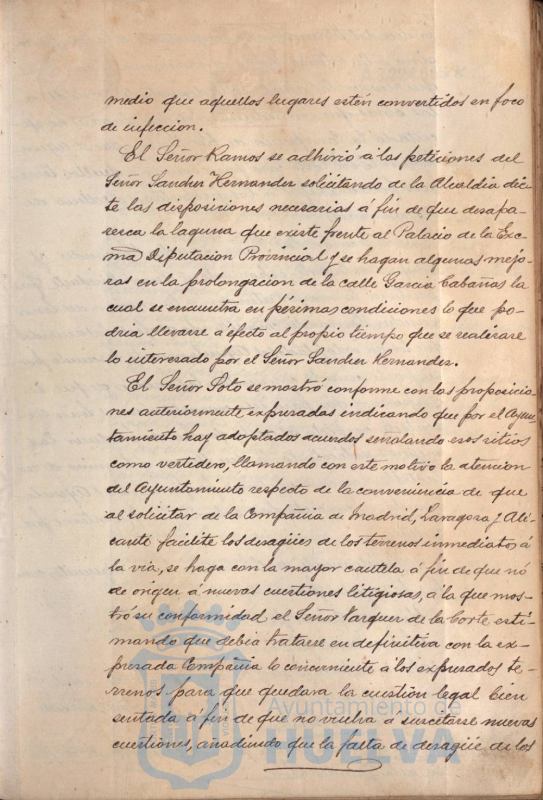 medio que aquellos lugares estén convertidos en foco
de infeccion.
El Señor Ramos se adhirió á las peticiones del
Señor Sanchez Hernandez solicitando de la Alcaldia dic-
te las disposiciones necesarias á fin de que desapa-
rezca la laguna que existe frente al Palacio de la Exc-
ma Diputacion Provincial y se hagan algunas mejo-
ras en la prolongacion de la calle Garcia Cabañas la
cual se encuentra en pésimas condiciones lo que po-
dria llevarse á efecto al propio tiempo que se realizase
lo interesado por el Señor Sanchez Hernandez.
El Señor Soto se mostró conforme con las proposicio-
nes anteriormente expresadas indicando que por el Ayun-
tamiento hay adoptados acuerdos señalando esos sitios
como vertedero, llamando con este motivo la atencion
del Ayuntamiento respecto de la conveniencia de que
al solicitar de la Compañia de Madrid, Zaragoza y Ali-
cante facilite los desagües de los terrenos inmediatos á
la via, se haga con la mayor cautela á fin de que nó
de origen á nuevas cuestiones litigiosas, á la que mos-
tró su conformidad el Señor Vazquez de la Corte esti-
mando que debia tratarse en definitiva con la ex-
presada Compañia lo concerniente á los expresados te-
rrenos para que quedara la cuestion legal bien
sentada á fin de que no vuelva á suscitarse nuevas
cuestiones, añadiendo que la falta de desagüe de los
Ayuntamiento de
HUELVA